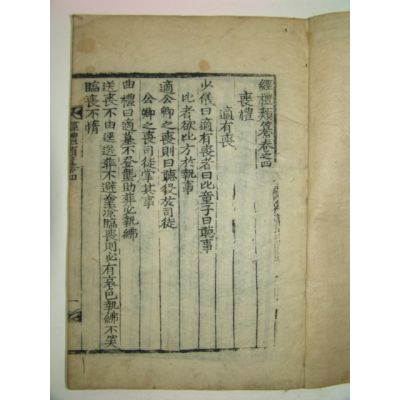 經禮類纂卷之四
喪禮
適有喪
少儀曰適有喪者曰比童子曰聽事
比者欲比方於執事
適公卿之喪則曰聽役於司徒
公卿之喪司徒掌其事
曲禮曰適墓不登壟助葬必執紼
送喪不由徑送葬不避塗潦臨喪則必有哀色執紼不笑
臨喪不惰